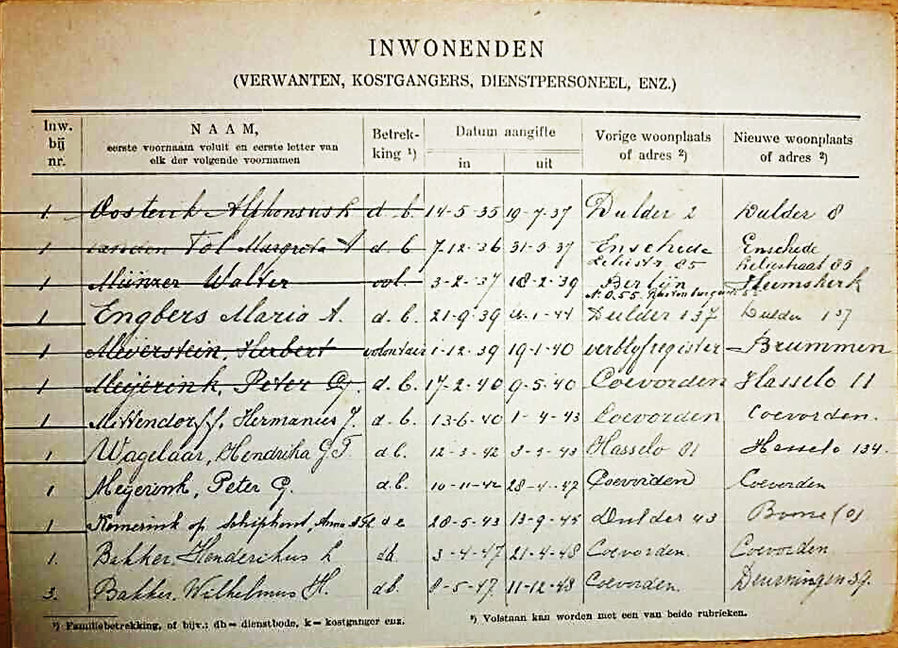 INWONENDEN
(VERWANTEN, KOSTGANGERS, DIENSTPERSONEEL, ENZ.)
Inw. bij nr. NAAM, eerste voornaam voluit en eerste letter van elk der volgende voornamen Betrekking ¹) Datum aangifte in uit Vorige woonplaats of adres ²) Nieuwe woonplaats of adres ²)
1. Oosterik Alphonsus d. b. 14-5-35 19-7-37 Dulder 2 Dulder 8
1 Tol Margreta A d. b 7-12-36 31-3-37 Enschede Leliestr 85 Enschede Leliestraat 85
1 Münzer Walter vol. 3-2-37 18-2-39 Berlijn N.O.55. Heemskerk
1 Engbers Maria A. d. b. 21-9-39 1-41 Dulder 137 Dulder 137
1 Meverstein, Herbert volontair 1-12-39 19-1-40 verblyfregister Brummen
1 Meijerink, Peter G. d. b. 17-2-40 9-5-40 Coevorden Hasselo 11
1 Mittendorff, Hermanus J. d. b. 13-6-40 1-4-43 Coevorden Coevorden.
1 Wagelaar, Hendrika G.F. d.b. 12-3-42 3-5-43 Hasselo Hasselo 134.
1 Meyerink, Peter G. d.b. 10-11-42 28-4-47 Coevorden Coevorden
1 op Schiphorst, Anna 20-5-43 13-9-45 Dulder 43 Borne
1. Bakker, Henderikus L db. 3-4-47 21-4-48 Coevorden. Coevorden
3. Bakker, Wilhelmus H. d.b. -5-47 11-12-48 Coevorden. Deurningen 39.
¹) Familiebetrekking, of bijv.: db = dienstbode, k = kostganger enz. ²) Volstaan kan worden met een van beide rubrieken.